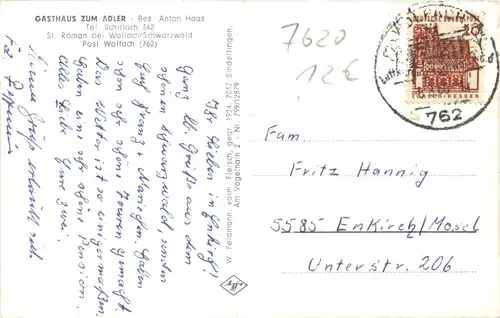 GASTHAUS ZUM ADLER - Bes. Anton Haas
Tel. Schiltach 342
St. Roman bei Wolfach/Schwarzwald
Post Wolfach (762)
7620
12 €
DEUTSCHE BUNDESPOST
20
762
Ihr Lieben in Enkirch!
Ganz lb. Grüße aus dem
schönen Schwarzwald, senden
Euch Franz + Marion. Haben
schon sehr schöne Touren gemacht
Das Wetter ist so einigermaßen.
Haben ein sehr schöne Pension.
Alles Liebe Eure zwei.
Meine Grüße
W. Feldmann, vorm. Fleisch, gegr. 1924, 7032 Sindelfingen,
Am Vogelherd 2 - Nr. 799/12879
Fam.
Fritz Hannig
5585 Enkirch/Mosel
Unterstr. 206